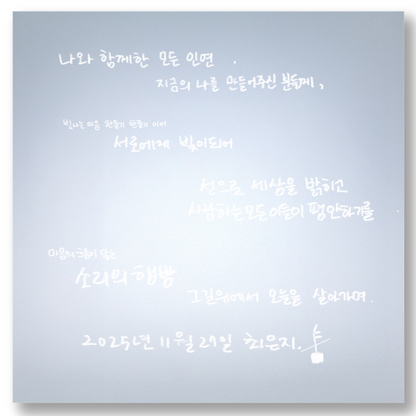 나와 함께한 모든 인연.
지금의 나를 만들어주신 분들께,
빛나는 마음 한줄기 한줄기 이어
서로에게 빛이되어
선으로 세상을 밝히고
사랑하는 모든 이들이 평안하기를
마음의 이 있는
소리의 행방
그길위에서 오늘을 살아가며.
2025년 11월 27일 최은지.